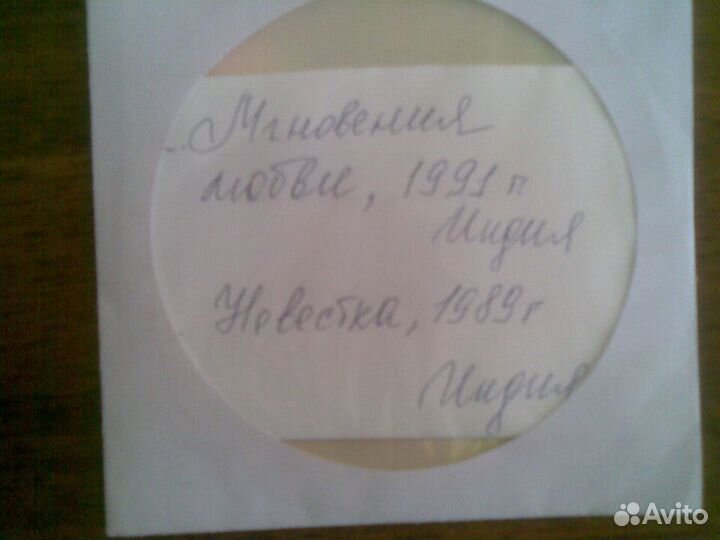 Мгновения
любви, 1991 г
Индия
Невестка, 1989 г
Индия
Avito